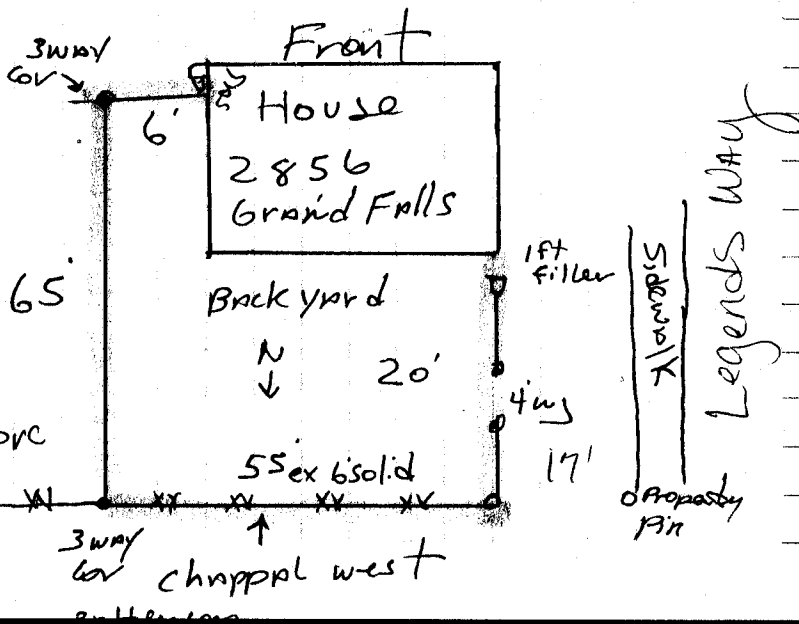 Front
3 WAY
cor
6'
House
2856
Grand Falls
65'
Backyard
N
20'
1ft
filler
Sidewalk
Legends Way
4' wg
17'
55' ex 6' solid
Property
Pin
3 WAY
cor
chappal west